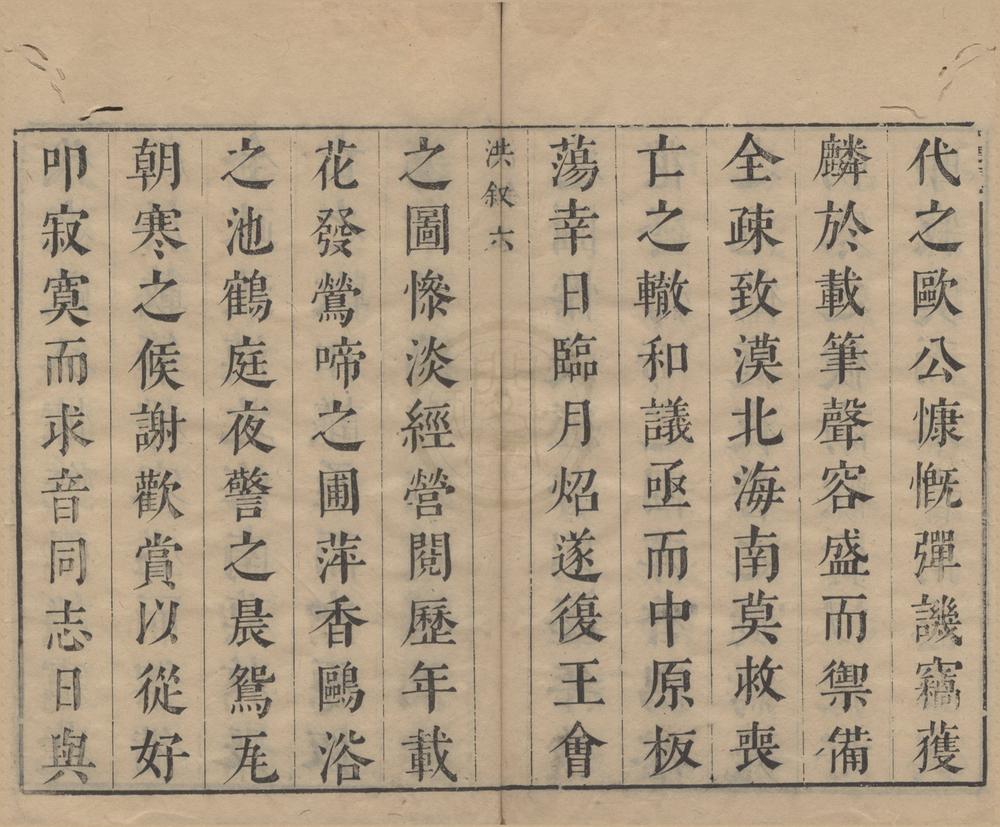 代之歐公慷慨彈譏竊獲
麟於載筆聲容盛而禦備
全疎致漠北海南莫救喪
亡之轍和議亟而中原板
蕩幸日臨月炤遂復王會
洪叙六
之圖慘淡經營閱歷年載
花發鶯啼之圃萍香鷗浴
之池鶴庭夜警之晨鴛瓦
朝寒之候謝歡賞以從好
叩寂寞而求音同志日與